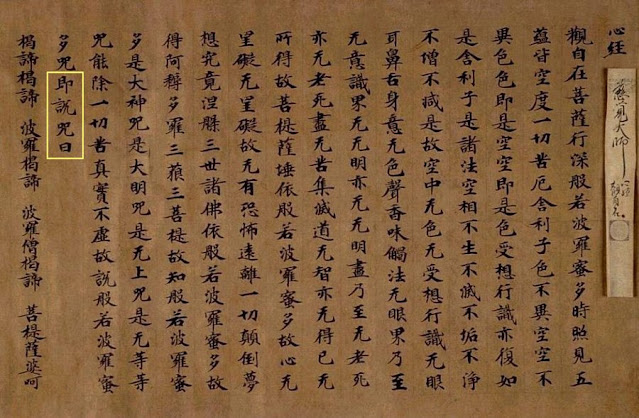 慈覺大師
心経
觀自在菩薩行深般若波羅蜜多時照見五
蘊皆空度一切苦厄舍利子色不異空空不
異色色即是空空即是色受想行識亦復如
是舍利子是諸法空相不生不滅不垢不淨
不增不減是故空中无色无受想行識无眼
耳鼻舌身意无色聲香味觸法无眼界乃至
无意識界无无明亦无无明盡乃至无老死
亦无老死盡无苦集滅道无智亦无得已无
所得故菩提薩埵依般若波羅蜜多故心无
罣礙无罣礙故无有恐怖遠離一切顛倒夢
想究竟涅槃三世諸佛依般若波羅蜜多故
得阿耨多羅三藐三菩提故知般若波羅蜜
多是大神咒是大明咒是无上咒是无等等
咒能除一切苦真實不虛故說般若波羅蜜
多咒即說咒曰
揭諦揭諦 波羅揭諦 波羅僧揭諦 菩提薩婆呵